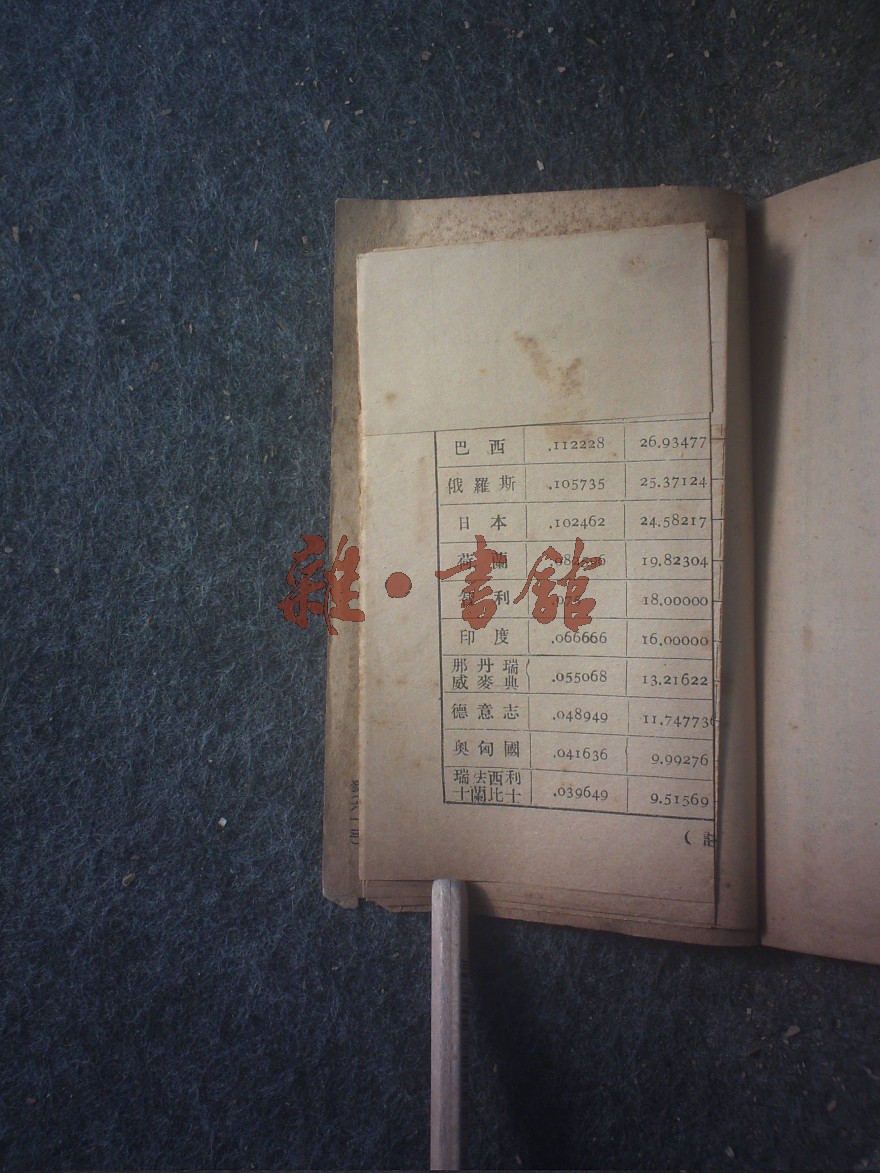 巴西 .112228 26.93477
俄羅斯 .105735 25.37124
日本 .102462 24.58217
荷蘭 .082596 19.82304
智利 .075 18.00000
印度 .066666 16.00000
那丹瑞
威麥典 .055068 13.21622
德意志 .048949 11.74773
奥匈國 .041636 9.99276
瑞法西利
十蘭比士 .039649 9.51569
（註
雜·書館